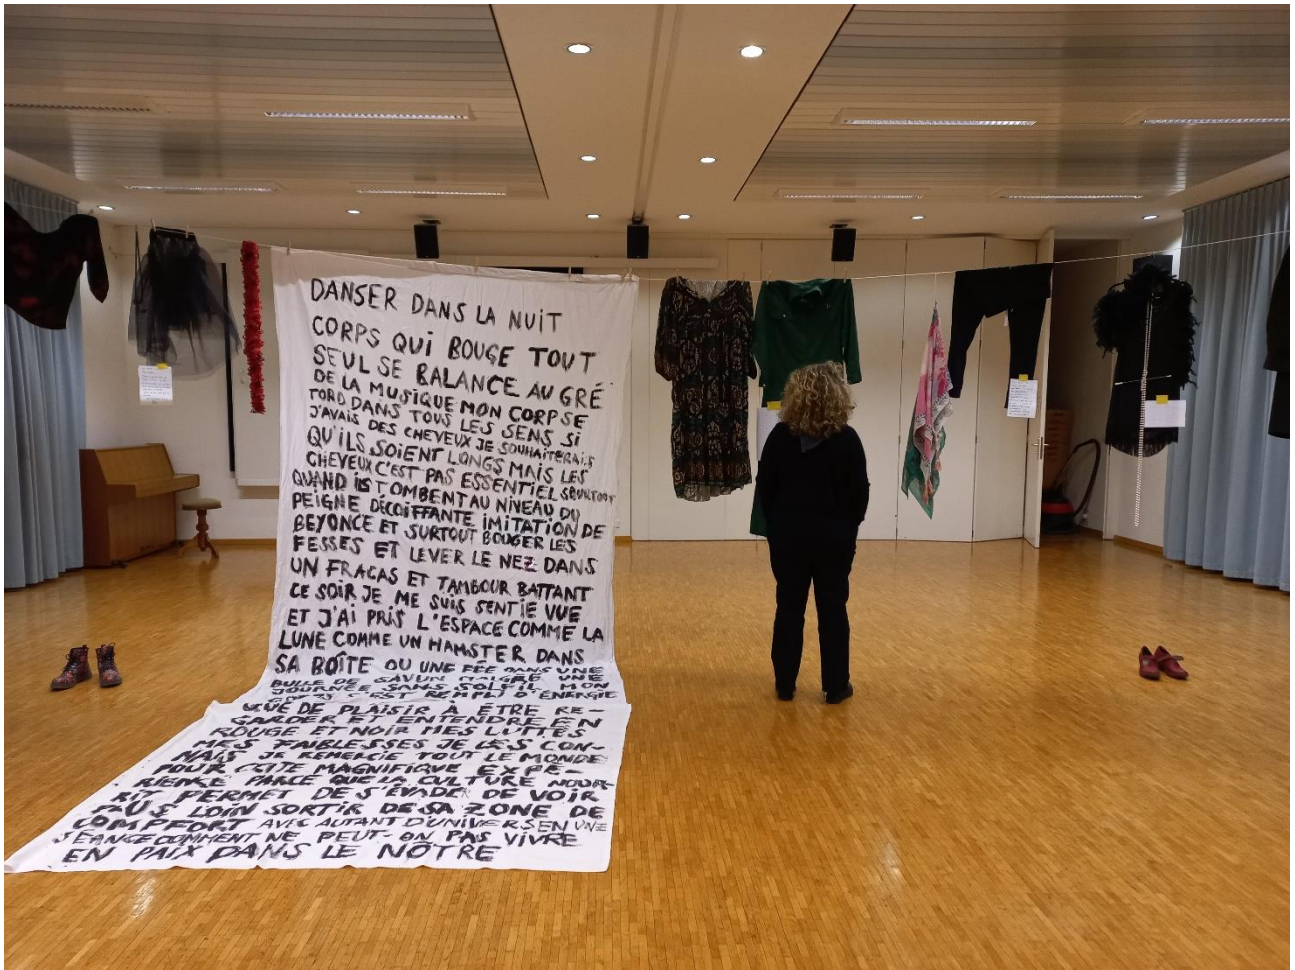 DANSER DANS LA NUIT
CORPS QUI BOUGE TOUT
SEUL SE BALANCE AU GRÉ
DE LA MUSIQUE MON CORPS SE
TORD DANS TOUS LES SENS SI
J'AVAIS DES CHEVEUX JE SOUHAITERAIS
QU'ILS SOIENT LONGS MAIS LES
CHEVEUX C'EST PAS ESSENTIEL SURTOUT
QUAND ILS TOMBENT AU NIVEAU DU
PEIGNE DÉCOIFFANTE IMITATION DE
BEYONCE ET SURTOUT BOUGER LES
FESSES ET LEVER LE NEZ DANS
UN FRACAS ET TAMBOUR BATTANT
CE SOIR JE ME SUIS SENTIE VUE
ET J'AI PRIS L'ESPACE COMME LA
LUNE COMME UN HAMSTER DANS
SA BOÎTE OU UNE FÉE DANS UNE
BULLE DE SAVON MALGRÉ UNE
JOURNÉE SANS SOLEIL MON
CORPS S'EST REMPLI D'ÉNERGIE
DE PLAISIR À ÊTRE RE-
GARDER ET ENTENDRE EN
ROUGE ET NOIR MES LUTTES
MES FAIBLESSES JE LES CON-
NAIS JE REMERCIE TOUT LE MONDE
POUR CETTE MAGNIFIQUE EXPÉ-
RIENCE PARCE QUE LA CULTURE NOUR-
RIT PERMET DE S'ÉVADER DE VOIR
PLUS LOIN SORTIR DE SA ZONE DE
COMPFORT AVEC AUTANT D'UNIVERS EN UNE
SÉANCE COMMENT NE PEUT-ON PAS VIVRE
EN PAIX DANS LE NÔTRE